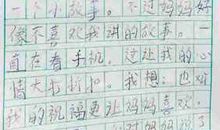 一个小故事。不过妈妈好
像不喜欢我讲的故事。一
直在看手机，这让我的心
情大打折扣。我想：也许
我的祝福更让妈妈喜欢。